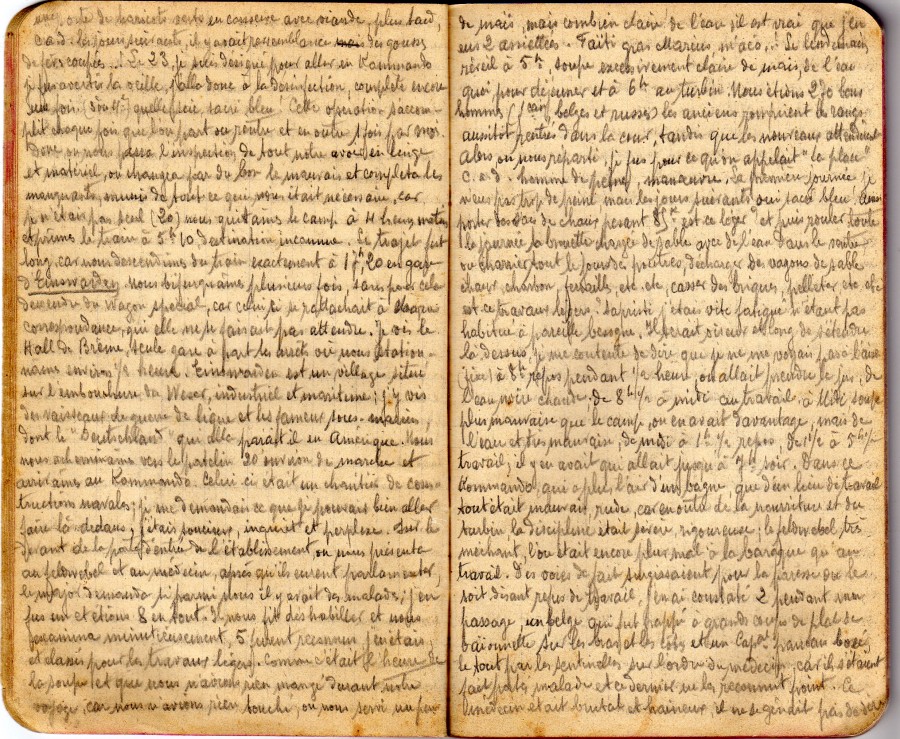 une sorte de haricots verts en conserve avec viande, plus tard,
c.à.d. les jours suivants, il y avait ressemblance des gousses
de fèves coupées. Le 23, je suis désigné pour aller en Kommando
je fus averti la veille, j'allo donc à la désinfection, complète encore
une fois. quelle scie sacré bleu! Cette opération s'accom-
plit chaque fois que l'on part ou rentre et en outre 1 fois par mois.
Donc on nous passa l'inspection de tout notre avoir en linge
et matériel, on changea par du bon le mauvais et compléta les
manquants, munis de tout ce qui nous était nécessaire, car
je n'étais pas seul (20) nous quittames le camp à 4 heures matin
et prîmes le train à 5h10, destination inconnue. Le trajet fut
long, car nous descendimes du train exactement à 17h20 en gare
d'Einswarden. Nous bifurquâmes plusieurs fois, sans pour cela
descendre du wagon spécial, car celui-ci se rattachait à chaque
correspondance, qui elle ne se faisait pas attendre. Je vis le
Hall de Brême, seule gare à part les arrêts où nous station-
names environ 1/2 heure. Einswarden est un village situé
sur l'embouchure du Weser, industriel et maritime; j'y vis
des vaisseaux de guerre de ligne et les fameux sous-marins,
dont le "Deutschland" qui alla parait il en Amérique. Nous
nous acheminâmes vers le patelin 20 environ de marche et
arrivames au Kommando. Celui ci était un chantier de cons-
tructions navales; je me demandais ce que je pouvais bien aller
faire là dedans; j'étais soucieux, inquiet et perplexe. Sur le
devant de la porte d'entrée de l'établissement, on nous présenta
au feldwebel et au médecin, après qu'ils eurent parlementer,
le major demanda si parmi nous il y avait des malades; j'en
fus un et étions 8 en tout. Il nous fit déshabiller et nous
examina minutieusement, 5 furent reconnus j'en étais
et classés pour les travaux légers. Comme c'était l'heure de
la soupe et que nous n'avions rien mangé durant notre
voyage, car nous n'avions rien touché, on nous servi un peu
de maïs, mais combien claire de l'eau, il est vrai que j'en
eus 2 assiettées. Le lendemain
réveil à 5h, soupe excessivement claire de maïs, de l'eau
quoi pour déjeuner et à 6h au turbin. Nous étions 270 bons
hommes belges et russes) les anciens rompirent les rangs
aussitôt rentrés dans la cour, tandis que les nouveaux attendirent
Alors on nous reparti, je fus pour ce qu'on appelait "la place"
c.à.d. homme de peine, manœuvre. La première journée je
n'eus pas trop de peine mais les jours suivants oui sacré bleu,
porter des sacs de chaux pesant 85 est ce léger et puis rouler toute
la journée la brouette chargée de sable avec de l'eau dans le ventre
ou charrier tout le jour des poutres, décharger des wagons de sable
chaux, charbon, ferrailles, etc. etc, casser des briques, pelleter etc etc
est ce travaux légers? Sapristi j'étais vite fatigué n'étant pas
habitué à pareille besogne. Il serait oiseux et long de s'étendre
là dessus, je me contente de dire que je ne me voyais pas à l'aise
à 8h repos pendant 1/2 heure, on allait prendre le jus, de
l'eau noire chaude. de 8h1/2 à midi au travail. à Midi soupe
plus mauvaise que le camp, on en avait davantage, mais de
l'eau et très mauvaise, de midi à 1h1/2 repos, de 1h1/2 à 5h1/2
travail; il y en avait qui allait jusqu'à 7h soir. Dans ce
Kommando, qui a plus l'air d'un bagne, que d'un lieu de travail
tout était mauvais, rude, car en outre de la nourriture et du
turbin la discipline était sévère, rigoureuse; le feldwebel, très
méchant, l'on était encore plus mal à la baraque qu'au
travail. Des voies de fait surgissaient, pour la paresse ou le
soit disant refus de travail, j'en ai constaté 2 pendant mon
passage, un belge qui fut frappé à grands coups de plat de
baionnette sur les bras et les côtés et un Capal français boxé,
le tout par les sentinelles sur l'ordre du médecin, car ils s'étaient
fait portés malade et ce dernier ne les reconnut point. Ce
médecin était brutal et haineux, il ne se gênait pas de dire